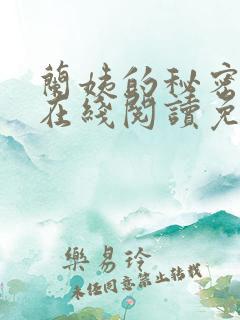 蘭姨的秘密
在綫閱讀免
樂易玲
未经同意禁止转载